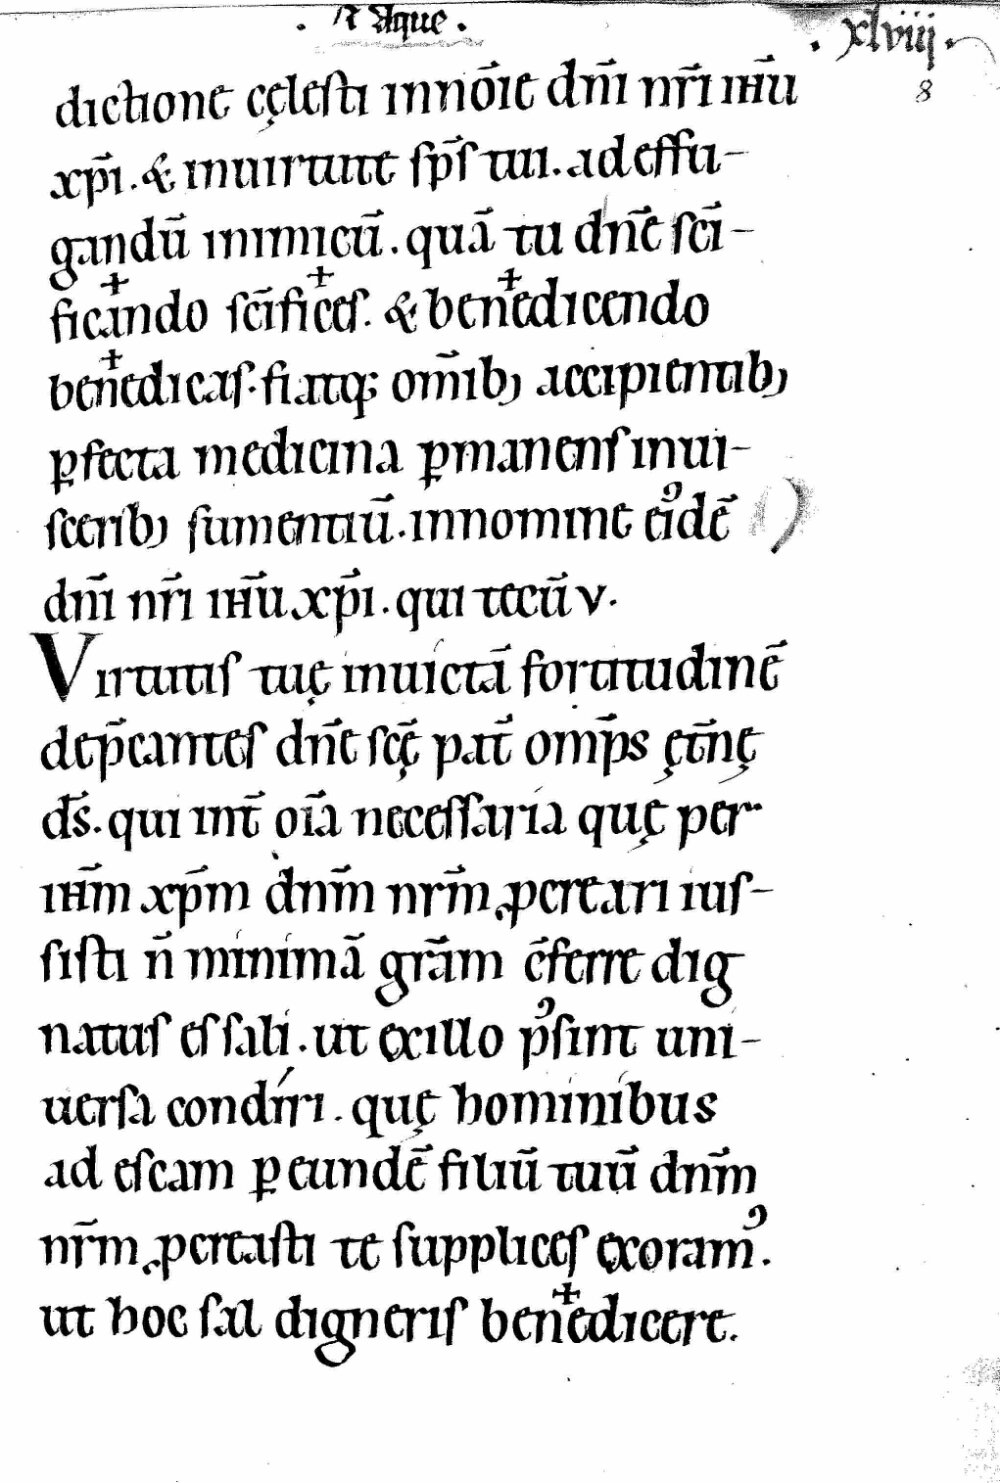 . R Aque .
. xlviij .
8
dictione cęlesti in nōie dn̄i nr̄i ıħ̄u
xp̄i . & in uirtute sp̄s tui . ad effu-
gandū inimicū . quā tu dn̄e sc̄i-
fica✝ndo sc̄ifi✝ces . & ben✝edicendo
ben✝edicas . fiatq; om̄ib; accipientib;
ꝑfecta medicina ꝑmanens in ui-
scerib; sumentiū . in nomine eiꝰdē
dn̄i nr̄i ıħ̄u xp̄i . qui tecū v .
Virtutis tuę inuictā fortitudinē
dep̄cantes dn̄e sc̄ę pat̄ omp̄s ęt̄nę
ds̄ . qui int̄ oīa necessaria quę per
ıħ̄m xp̄m dn̄m nr̄m ꝓcreari ius-
sisti n̄ minimā gr̄am c̄ferre dig
natus es sali . ut ex illo pꝰsint uni-
uersa condiri . quę hominibus
ad escam ꝑ eundē filiū tuū dn̄m
nr̄m ꝓcreasti te supplices exoramꝰ .
ut hoc sal digneris ben✝edicere .